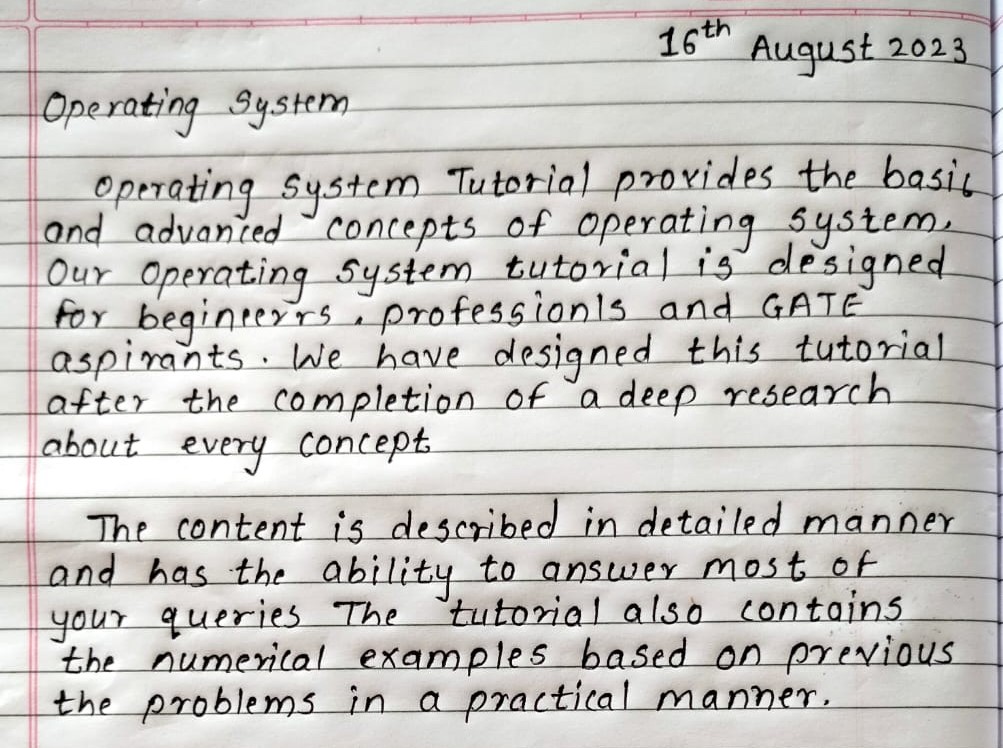 16th August 2023
Operating System
Operating System Tutorial provides the basic
and advanced concepts of operating system.
Our Operating System tutorial is designed
for begineerrs, professionls and GATE
aspirants. We have designed this tutorial
after the completion of a deep research
about every concept
The content is described in detailed manner
and has the ability to answer most of
your queries The tutorial also contains
the numerical examples based on previous
the problems in a practical manner.